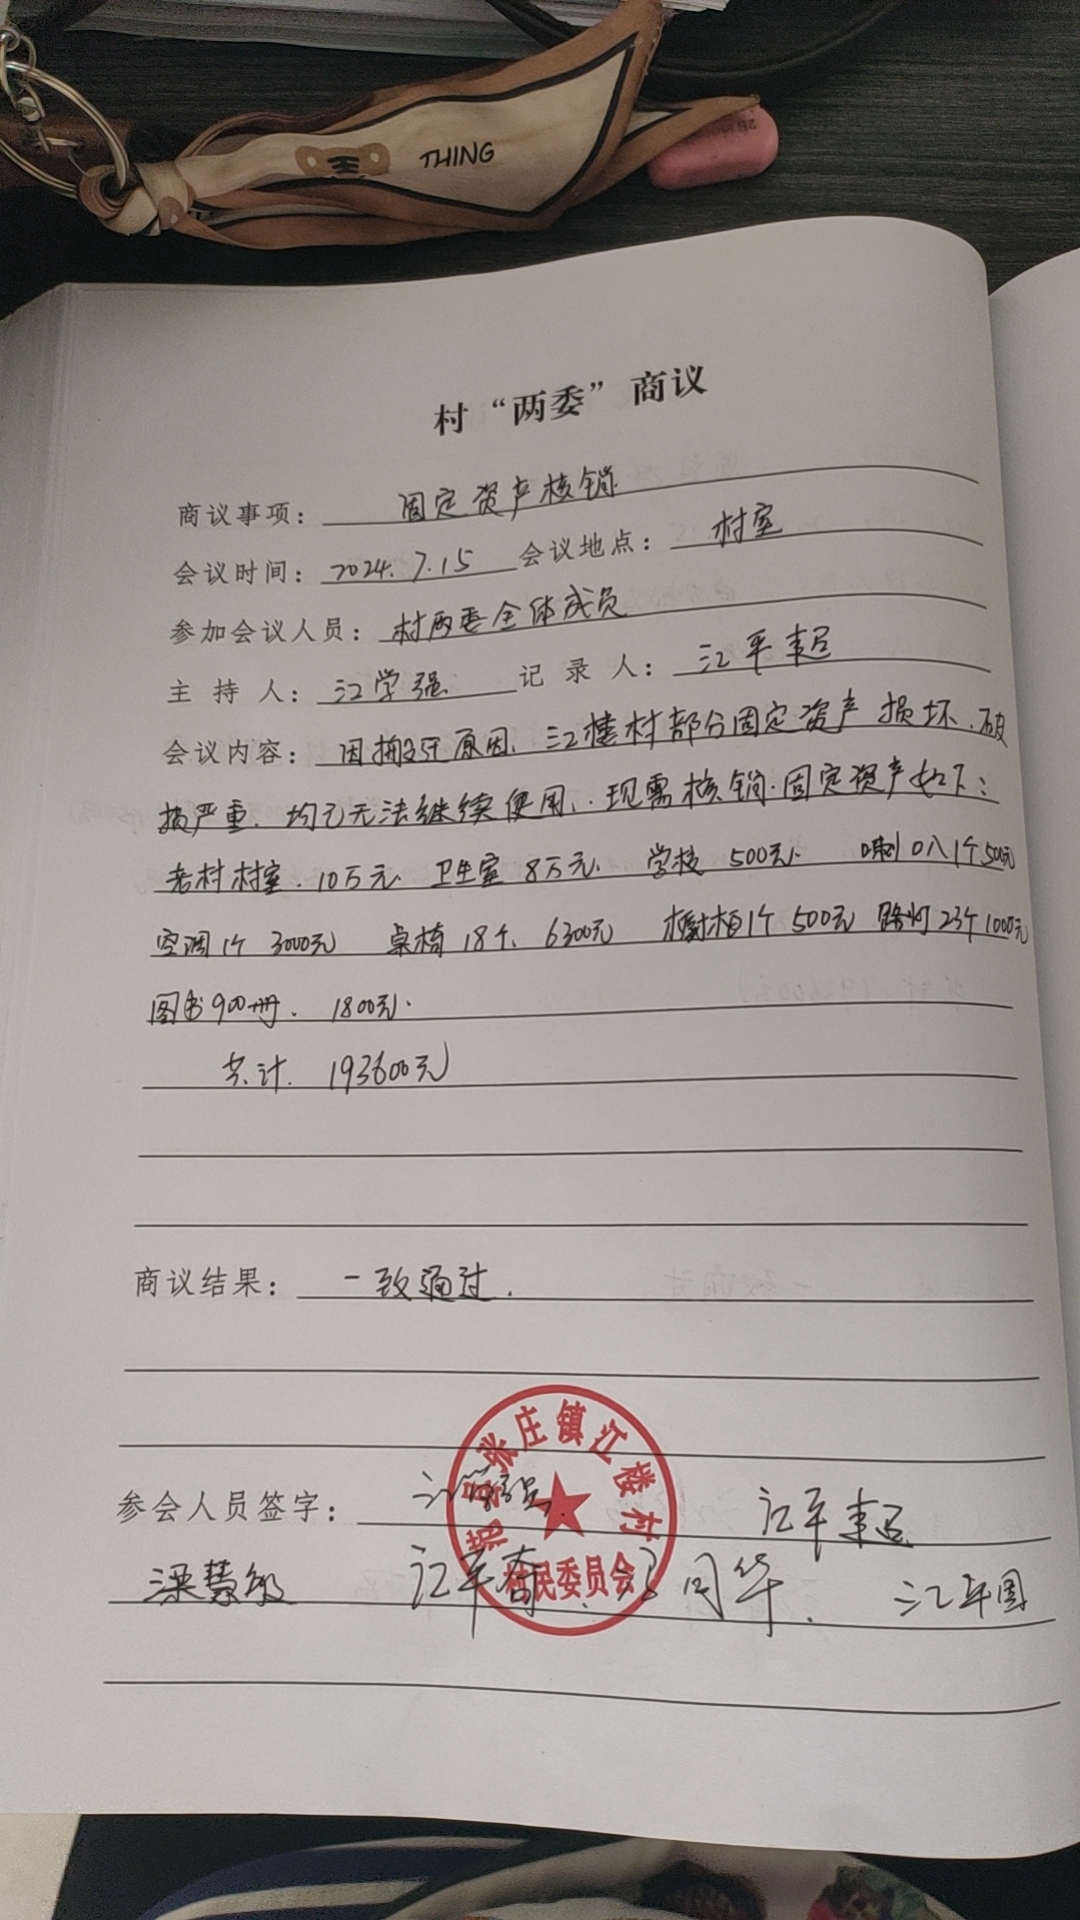 THING
2B
村“两委”商议
商议事项： 固定资产核销
会议时间： 2024.7.15 会议地点： 村室
参加会议人员： 村两委全体成员
主 持 人： 江学强 记 录 人： 江平
会议内容： 因搬迁原因、江楼村部分固定资产损坏、破
损严重、均已无法继续使用，现需核销.固定资产如下：
老村村室.10万元. 卫生室8万元. 学校500元. 喇叭1个500元
空调1个 3000元 桌椅18个、6300元 橱柜1个500元 路灯23个1000元
图书900册、1800元.
共计. 193600元
商议结果： 一致通过.
参会人员签字： 江学强 江平
梁慧敏 江平 同华. 江平周
张庄镇江楼村
村民委员会